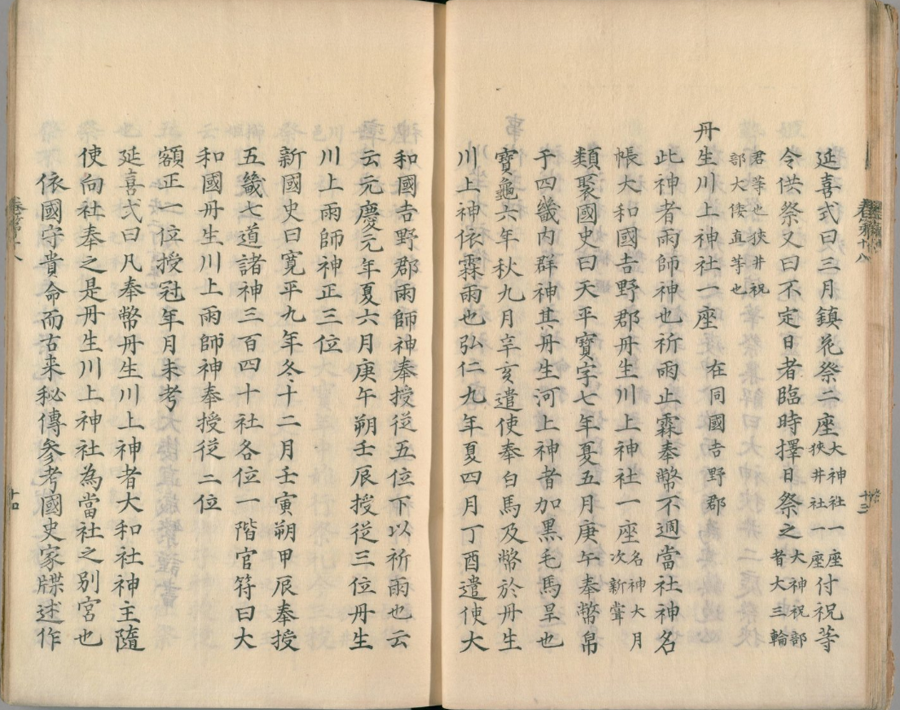 延喜式曰三月鎮花祭二座大神社一座狹井社一座付祝等
令供祭又曰不定日者臨時擇日祭之大神祝部者大三輪
君等也狹井祝部大倭直等也
丹生川上神社一座 在同國吉野郡
此神者雨師神也祈雨止霖奉幣不週當社神名
帳大和國吉野郡丹生川上神社一座名神大月次新甞
類聚國史曰天平寶字七年夏五月庚午奉幣帛
于四畿內群神其丹生河上神者加黑毛馬旱也
寶龜六年秋九月辛亥遣使奉白馬及幣於丹生
川上神依霖雨也弘仁九年夏四月丁酉遣使大
和國吉野郡雨師神奉授従五位下以祈雨也云
云元慶元年夏六月庚午朔壬辰授従三位丹生
川上雨師神正三位
新國史曰寛平九年冬十二月壬寅朔甲辰奉授
五畿七道諸神三百四十社各位一階官符曰大
和國丹生川上雨師神奉授従二位
額正一位授冠年月未考
延喜式曰凡奉幣丹生川上神者大和社神主隨
使向社奉之是丹生川上神社為當社之別宮也
依國守貴命而古来秘傳參考國史家牒述作